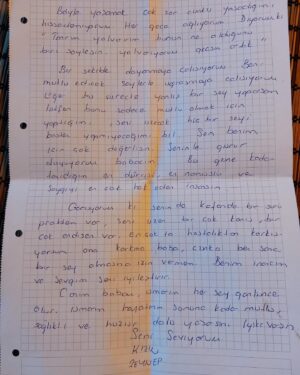 Böyle yaşamak çok zor çünkü yaşadığını
hissedemiyorum. Her gece ağlıyorum. Diyorum ki
" Tanrım yalvarırım bunun ne olduğunu
biri söylesin, yalvarıyorum geçsin artık "
Bu şekilde dayanmaya çalışıyorum. Beni
mutlu edicek şeylerle uğraşmaya çalışıyorum.
Eğer bu süreçte yanlış bir şey yaparsam
lütfen bunu sadece mutlu olmak için
yaptığımı, seni üzecek hiç bir şeyi
bilerek yapmıyacağımı bil. Sen benim
için çok değerlisin. Seninle gurur
duyuyorum babacım. Bu gene kadar
tanıdığım en dürüst, en namuslu ve
saygıyı en çok hak eden insansın.
Görüyorum ki senin de kafanda bir sürü
problem var, seni üzen bir çok konu, bir
çok endişen var. En çok ta hastalıktan korku-
yorsun ama korkma baba, çünkü ben sana
bir şey olmasına izin vermem. Benim inancım
ve sevgim seni iyileştirir.
Canım babam, umarım her şey gönlünce
olur. Umarım hayatının sonuna kadar mutlu,
sağlıklı ve huzur dolu yaşarsın. İyiki varsın
Seni Seviyorum.
KIZIN
ZEYNEP